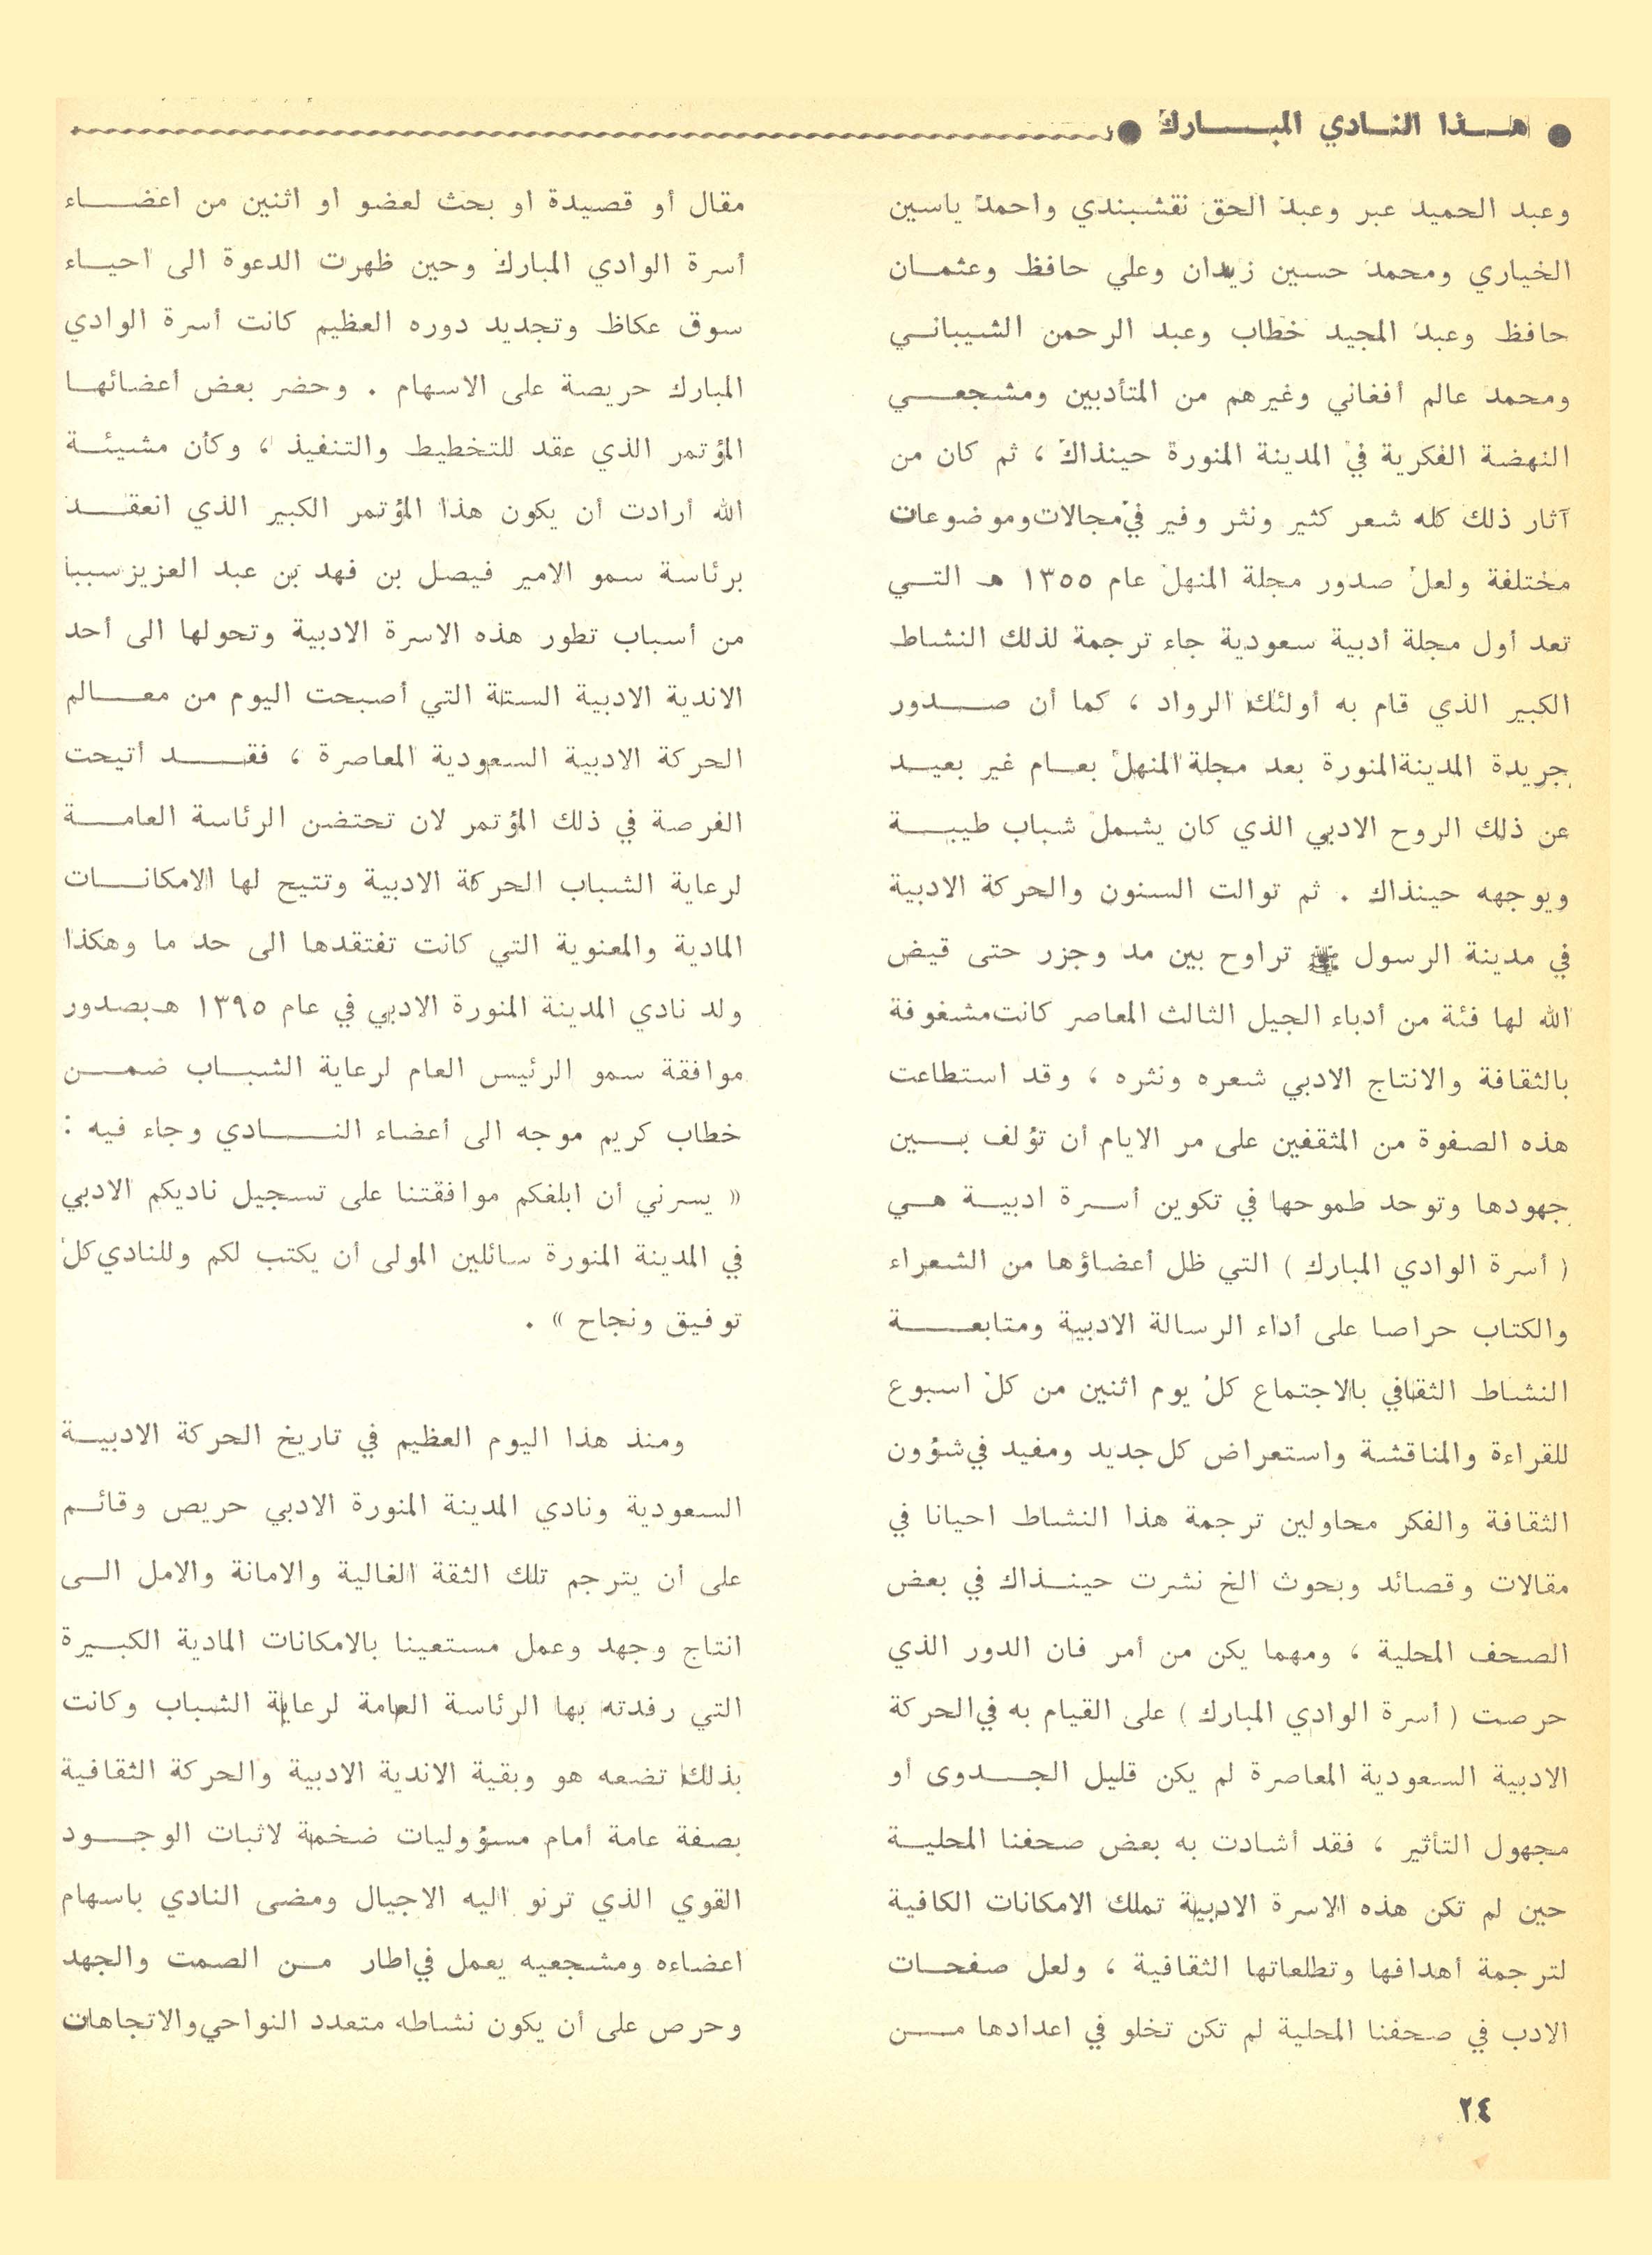 ● هذا النادي المبارك ●
وعبد الحميد عبر وعبد الحق نقشبندي واحمد ياسين
الخياري ومحمد حسين زيدان وعلي حافظ وعثمان
حافظ وعبد المجيد خطاب وعبد الرحمن الشيباني
ومحمد عالم أفغاني وغيرهم من المتأدبين ومشجعي
النهضة الفكرية في المدينة المنورة حينذاك ، ثم كان من
آثار ذلك كله شعر كثير ونثر وفير في مجالات وموضوعات
مختلفة ولعل صدور مجلة المنهل عام ١٣٥٥ هـ التي
تعد أول مجلة أدبية سعودية جاء ترجمة لذلك النشاط
الكبير الذي قام به أولئك الرواد ، كما أن صدور
جريدة المدينة المنورة بعد مجلة المنهل بعام غير بعيد
عن ذلك الروح الادبي الذي كان يشمل شباب طيبة
ويوجهه حينذاك . ثم توالت السنون والحركة الادبية
في مدينة الرسول ﷺ تراوح بين مد وجزر حتى قيض
الله لها فئة من أدباء الجيل الثالث المعاصر كانت مشغوفة
بالثقافة والانتاج الادبي شعره ونثره ، وقد استطاعت
هذه الصفوة من المثقفين على مر الايام أن تؤلف بين
جهودها وتوحد طموحها في تكوين أسرة ادبية هي
( أسرة الوادي المبارك ) التي ظل أعضاؤها من الشعراء
والكتاب حراصا على أداء الرسالة الادبية ومتابعة
النشاط الثقافي بالاجتماع كل يوم اثنين من كل اسبوع
للقراءة والمناقشة واستعراض كل جديد ومفيد في شؤون
الثقافة والفكر محاولين ترجمة هذا النشاط احيانا في
مقالات وقصائد وبحوث الخ نشرت حينذاك في بعض
الصحف المحلية ، ومهما يكن من أمر فان الدور الذي
حرصت ( أسرة الوادي المبارك ) على القيام به في الحركة
الادبية السعودية المعاصرة لم يكن قليل الجدوى أو
مجهول التأثير ، فقد أشادت به بعض صحفنا المحلية
حين لم تكن هذه الاسرة الادبية تملك الامكانات الكافية
لترجمة أهدافها وتطلعاتها الثقافية ، ولعل صفحات
الادب في صحفنا المحلية لم تكن تخلو في اعدادها من
مقال أو قصيدة او بحث لعضو او اثنين من اعضاء
أسرة الوادي المبارك وحين ظهرت الدعوة الى احياء
سوق عكاظ وتجديد دوره العظيم كانت أسرة الوادي
المبارك حريصة على الاسهام . وحضر بعض أعضائها
المؤتمر الذي عقد للتخطيط والتنفيذ ، وكأن مشيئة
الله أرادت أن يكون هذا المؤتمر الكبير الذي انعقد
برئاسة سمو الامير فيصل بن فهد بن عبد العزيز سببا
من أسباب تطور هذه الاسرة الادبية وتحولها الى أحد
الاندية الادبية الستة التي أصبحت اليوم من معالم
الحركة الادبية السعودية المعاصرة ، فقد أتيحت
الفرصة في ذلك المؤتمر لان تحتضن الرئاسة العامة
لرعاية الشباب الحركة الادبية وتتيح لها الامكانات
المادية والمعنوية التي كانت تفتقدها الى حد ما وهكذا
ولد نادي المدينة المنورة الادبي في عام ١٣٩٥ هـ بصدور
موافقة سمو الرئيس العام لرعاية الشباب ضمن
خطاب كريم موجه الى أعضاء النادي وجاء فيه :
« يسرني أن ابلغكم موافقتنا على تسجيل ناديكم الادبي
في المدينة المنورة سائلين المولى أن يكتب لكم وللنادي كل
توفيق ونجاح » .
ومنذ هذا اليوم العظيم في تاريخ الحركة الادبية
السعودية ونادي المدينة المنورة الادبي حريص وقائم
على أن يترجم تلك الثقة الغالية والامانة والامل الى
انتاج وجهد وعمل مستعينا بالامكانات المادية الكبيرة
التي رفدته بها الرئاسة العامة لرعاية الشباب وكانت
بذلك تضعه هو وبقية الاندية الادبية والحركة الثقافية
بصفة عامة أمام مسؤوليات ضخمة لاثبات الوجود
القوي الذي ترنو اليه الاجيال ومضى النادي باسهام
اعضاءه ومشجعيه يعمل في اطار من الصمت والجهد
وحرص على أن يكون نشاطه متعدد النواحي والاتجاهات
٢٤